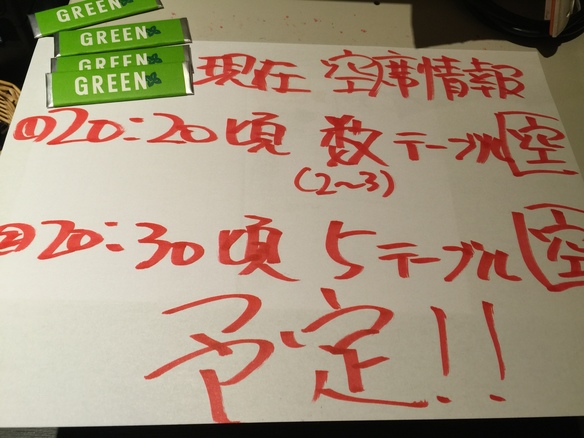 GREEN
GREEN
GREEN
GREEN
現在 空席情報
①20:20頃 数テーブル空
(2~3)
②20:30頃 5テーブル空
予定!!